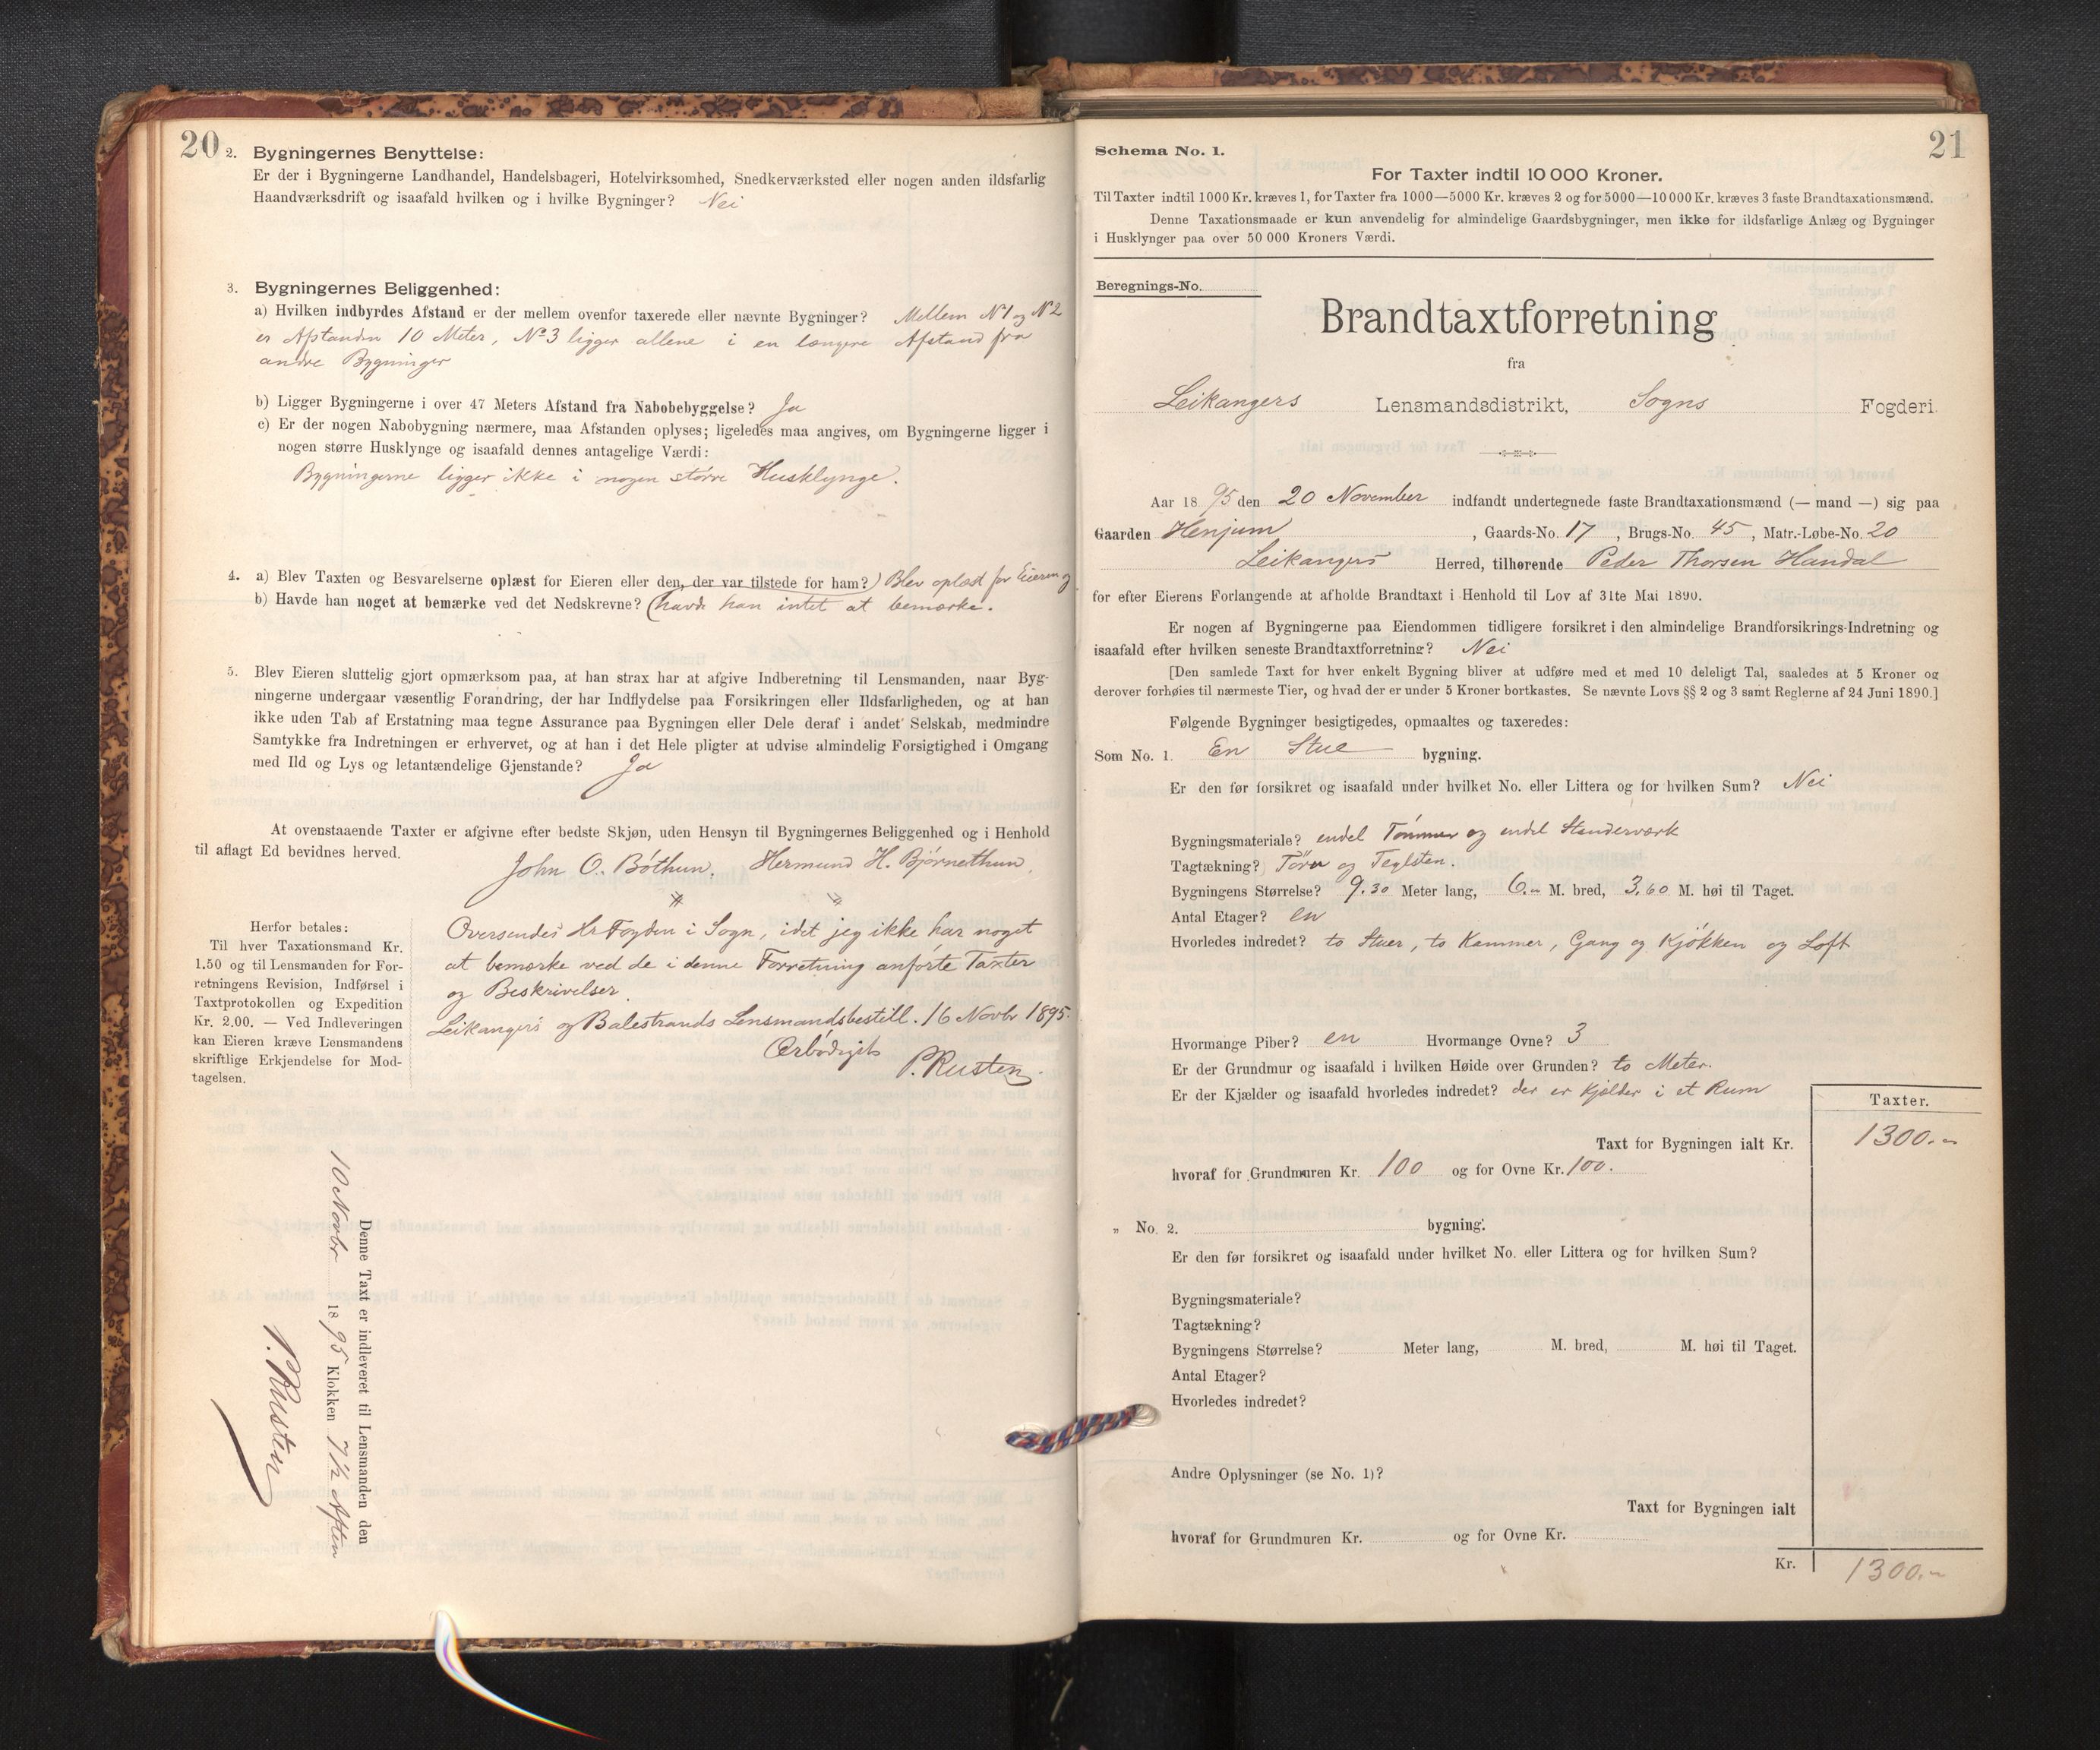 20
2. Bygningernes Benyttelse:
Er der i Bygningerne Landhandel, Handelsbageri, Hotelvirksomhed, Snedkerværksted eller nogen anden ildsfarlig
Haandværksdrift og isaafald hvilken og i hvilke Bygninger? Nei
3. Bygningernes Beliggenhed:
a) Hvilken indbyrdes Afstand er der mellem ovenfor taxerede eller nævnte Bygninger? Mellem N1 og N2
er Afstanden 10 Meter, No 3 ligger allene i en længere Afstand fra
andre Bygninger
b) Ligger Bygningerne i over 47 Meters Afstand fra Nabobebyggelse? Ja
c) Er der nogen Nabobygning nærmere, maa Afstanden oplyses; ligeledes maa angives, om Bygningerne ligger i
nogen større Husklynge og isaafald dennes antagelige Værdi:
Bygningerne ligger ikke i nogen större Husklynge.
4. a) Blev Taxten og Besvarelserne oplæst for Eieren eller den, der var tilstede for ham?) Blev oplæst for Eieren og
b) Havde han noget at bemærke ved det Nedskrevne? (havde han intet at bemærke.
5. Blev Eieren sluttelig gjort opmærksom paa, at han strax har at afgive Indberetning til Lensmanden, naar Byg-
ningerne undergaar væsentlig Forandring, der har Indflydelse paa Forsikringen eller Ildsfarligheden, og at han
ikke uden Tab af Erstatning maa tegne Assurance paa Bygningen eller Dele deraf i andet Selskab, medmindre
Samtykke fra Indretningen er erhvervet, og at han i det Hele pligter at udvise almindelig Forsigtighed i Omgang
med Ild og Lys og letantændelige Gjenstande? Ja
At ovenstaaende Taxter er afgivne efter bedste Skjøn, uden Hensyn til Bygningernes Beliggenhed og i Henhold
til aflagt Ed bevidnes herved.
John O. Böthun. Hermund H. Björnethun.
Herfor betales:
Til hver Taxationsmand Kr.
1.50 og til Lensmanden for For-
retningens Revision, Indførsel i
Taxtprotokollen og Expedition
Kr. 2.00. — Ved Indleveringen
kan Eieren kræve Lensmandens
skriftlige Erkjendelse for Mod-
tagelsen.
Oversendes Hr Fogden i Sogn, idet jeg ikke har noget
at bemærke ved de i denne Forretning anførte Taxter
og Beskrivelser.
Leikangers og Balestrands Lensmandsbestill. 16 Novbr 1895.
Ærbödigst
P. Rusten.
Denne Taxt er indleveret til Lensmanden den
10 Novbr 1895 Klokken 7½ Aften
P. Rusten
21
Schema No. 1.
For Taxter indtil 10 000 Kroner.
Til Taxter indtil 1000 Kr. kræves 1, for Taxter fra 1000—5000 Kr. kræves 2 og for 5000—10 000 Kr. kræves 3 faste Brandtaxationsmænd.
Denne Taxationsmaade er kun anvendelig for almindelige Gaardsbygninger, men ikke for ildsfarlige Anlæg og Bygninger
i Husklynger paa over 50 000 Kroners Værdi.
Beregnings-No.
Brandtaxtforretning
fra
Leikangers Lensmandsdistrikt, Sogns Fogderi.
Aar 1895 den 20 November indfandt undertegnede faste Brandtaxationsmænd (— mand —) sig paa
Gaarden Henjum, Gaards-No. 17, Brugs-No. 45, Matr.-Løbe-No. 20
Leikangers Herred, tilhørende Peder Thorsen Handal
for efter Eierens Forlangende at afholde Brandtaxt i Henhold til Lov af 31te Mai 1890.
Er nogen af Bygningerne paa Eiendommen tidligere forsikret i den almindelige Brandforsikrings-Indretning og
isaafald efter hvilken seneste Brandtaxtforretning? Nei
[Den samlede Taxt for hver enkelt Bygning bliver at udføre med et med 10 deleligt Tal, saaledes at 5 Kroner og
derover forhøies til nærmeste Tier, og hvad der er under 5 Kroner bortkastes. Se nævnte Lovs §§ 2 og 3 samt Reglerne af 24 Juni 1890.]
Følgende Bygninger besigtigedes, opmaaltes og taxeredes:
Som No. 1. En Stue bygning.
Er den før forsikret og isaafald under hvilket No. eller Littera og for hvilken Sum? Nei
Bygningsmateriale? endel Tömmer og endel Stenderværk
Tagtækning? Törv og Teglsten.
Bygningens Størrelse? 9.30 Meter lang, 6.- M. bred, 3.60 M. høi til Taget.
Antal Etager? en
Hvorledes indredet? to Stuer, to Kammer, Gang og Kjökken og Loft
Hvormange Piber? en Hvormange Ovne? 3
Er der Grundmur og isaafald i hvilken Høide over Grunden? to Meter.
Er der Kjælder og isaafald hvorledes indredet? der er Kjelder i et Rum
Taxter.
Taxt for Bygningen ialt Kr. 1300.-
hvoraf for Grundmuren Kr. 100 og for Ovne Kr. 100.
" No. 2. bygning.
Er den før forsikret og isaafald under hvilket No. eller Littera og for hvilken Sum?
Bygningsmateriale?
Tagtækning?
Bygningens Størrelse? Meter lang, M. bred, M. høi til Taget.
Antal Etager?
Hvorledes indredet?
Andre Oplysninger (se No. 1)?
Taxt for Bygningen ialt
hvoraf for Grundmuren Kr. og for Ovne Kr.
Kr. 1300.-